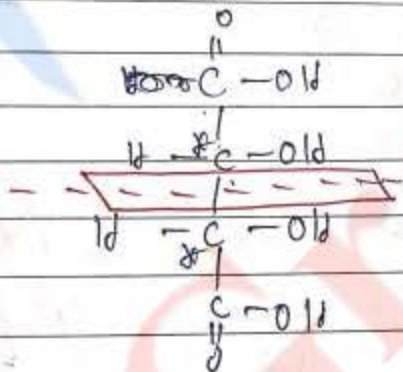 O
||
C - OH
|
H - *C - OH
|
H - *C - OH
|
C - OH
||
O